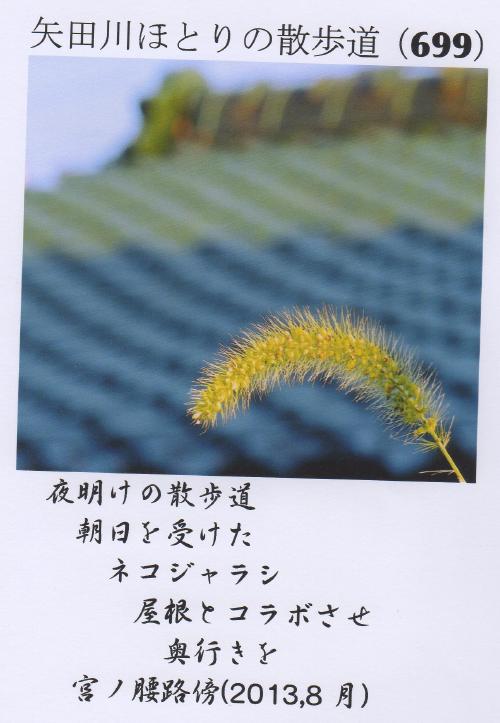 矢田川ほとりの散歩道（699）
夜明けの散歩道
朝日を受けた
ネコジャラシ
屋根とコラボさせ
奥行きを
宮ノ腰路傍(2013,8 月)